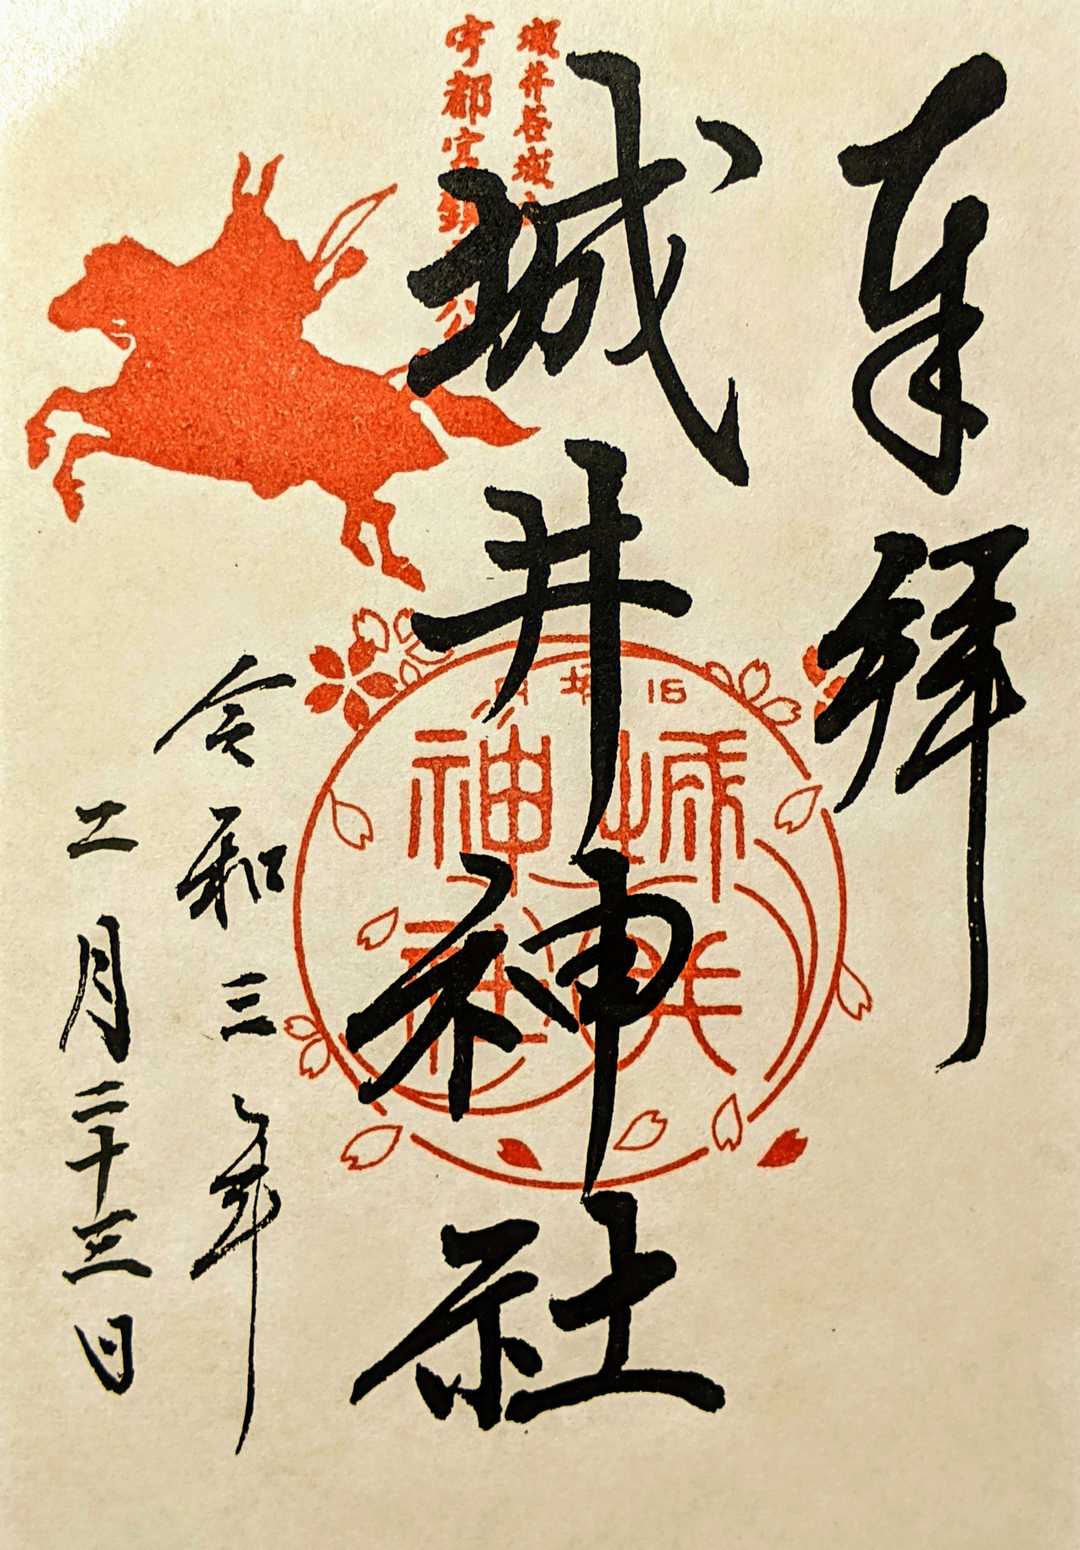 奉拝
城井谷城
宇都宮鎮公
城井神社
16
城井
神社
令和三年
二月二十三日